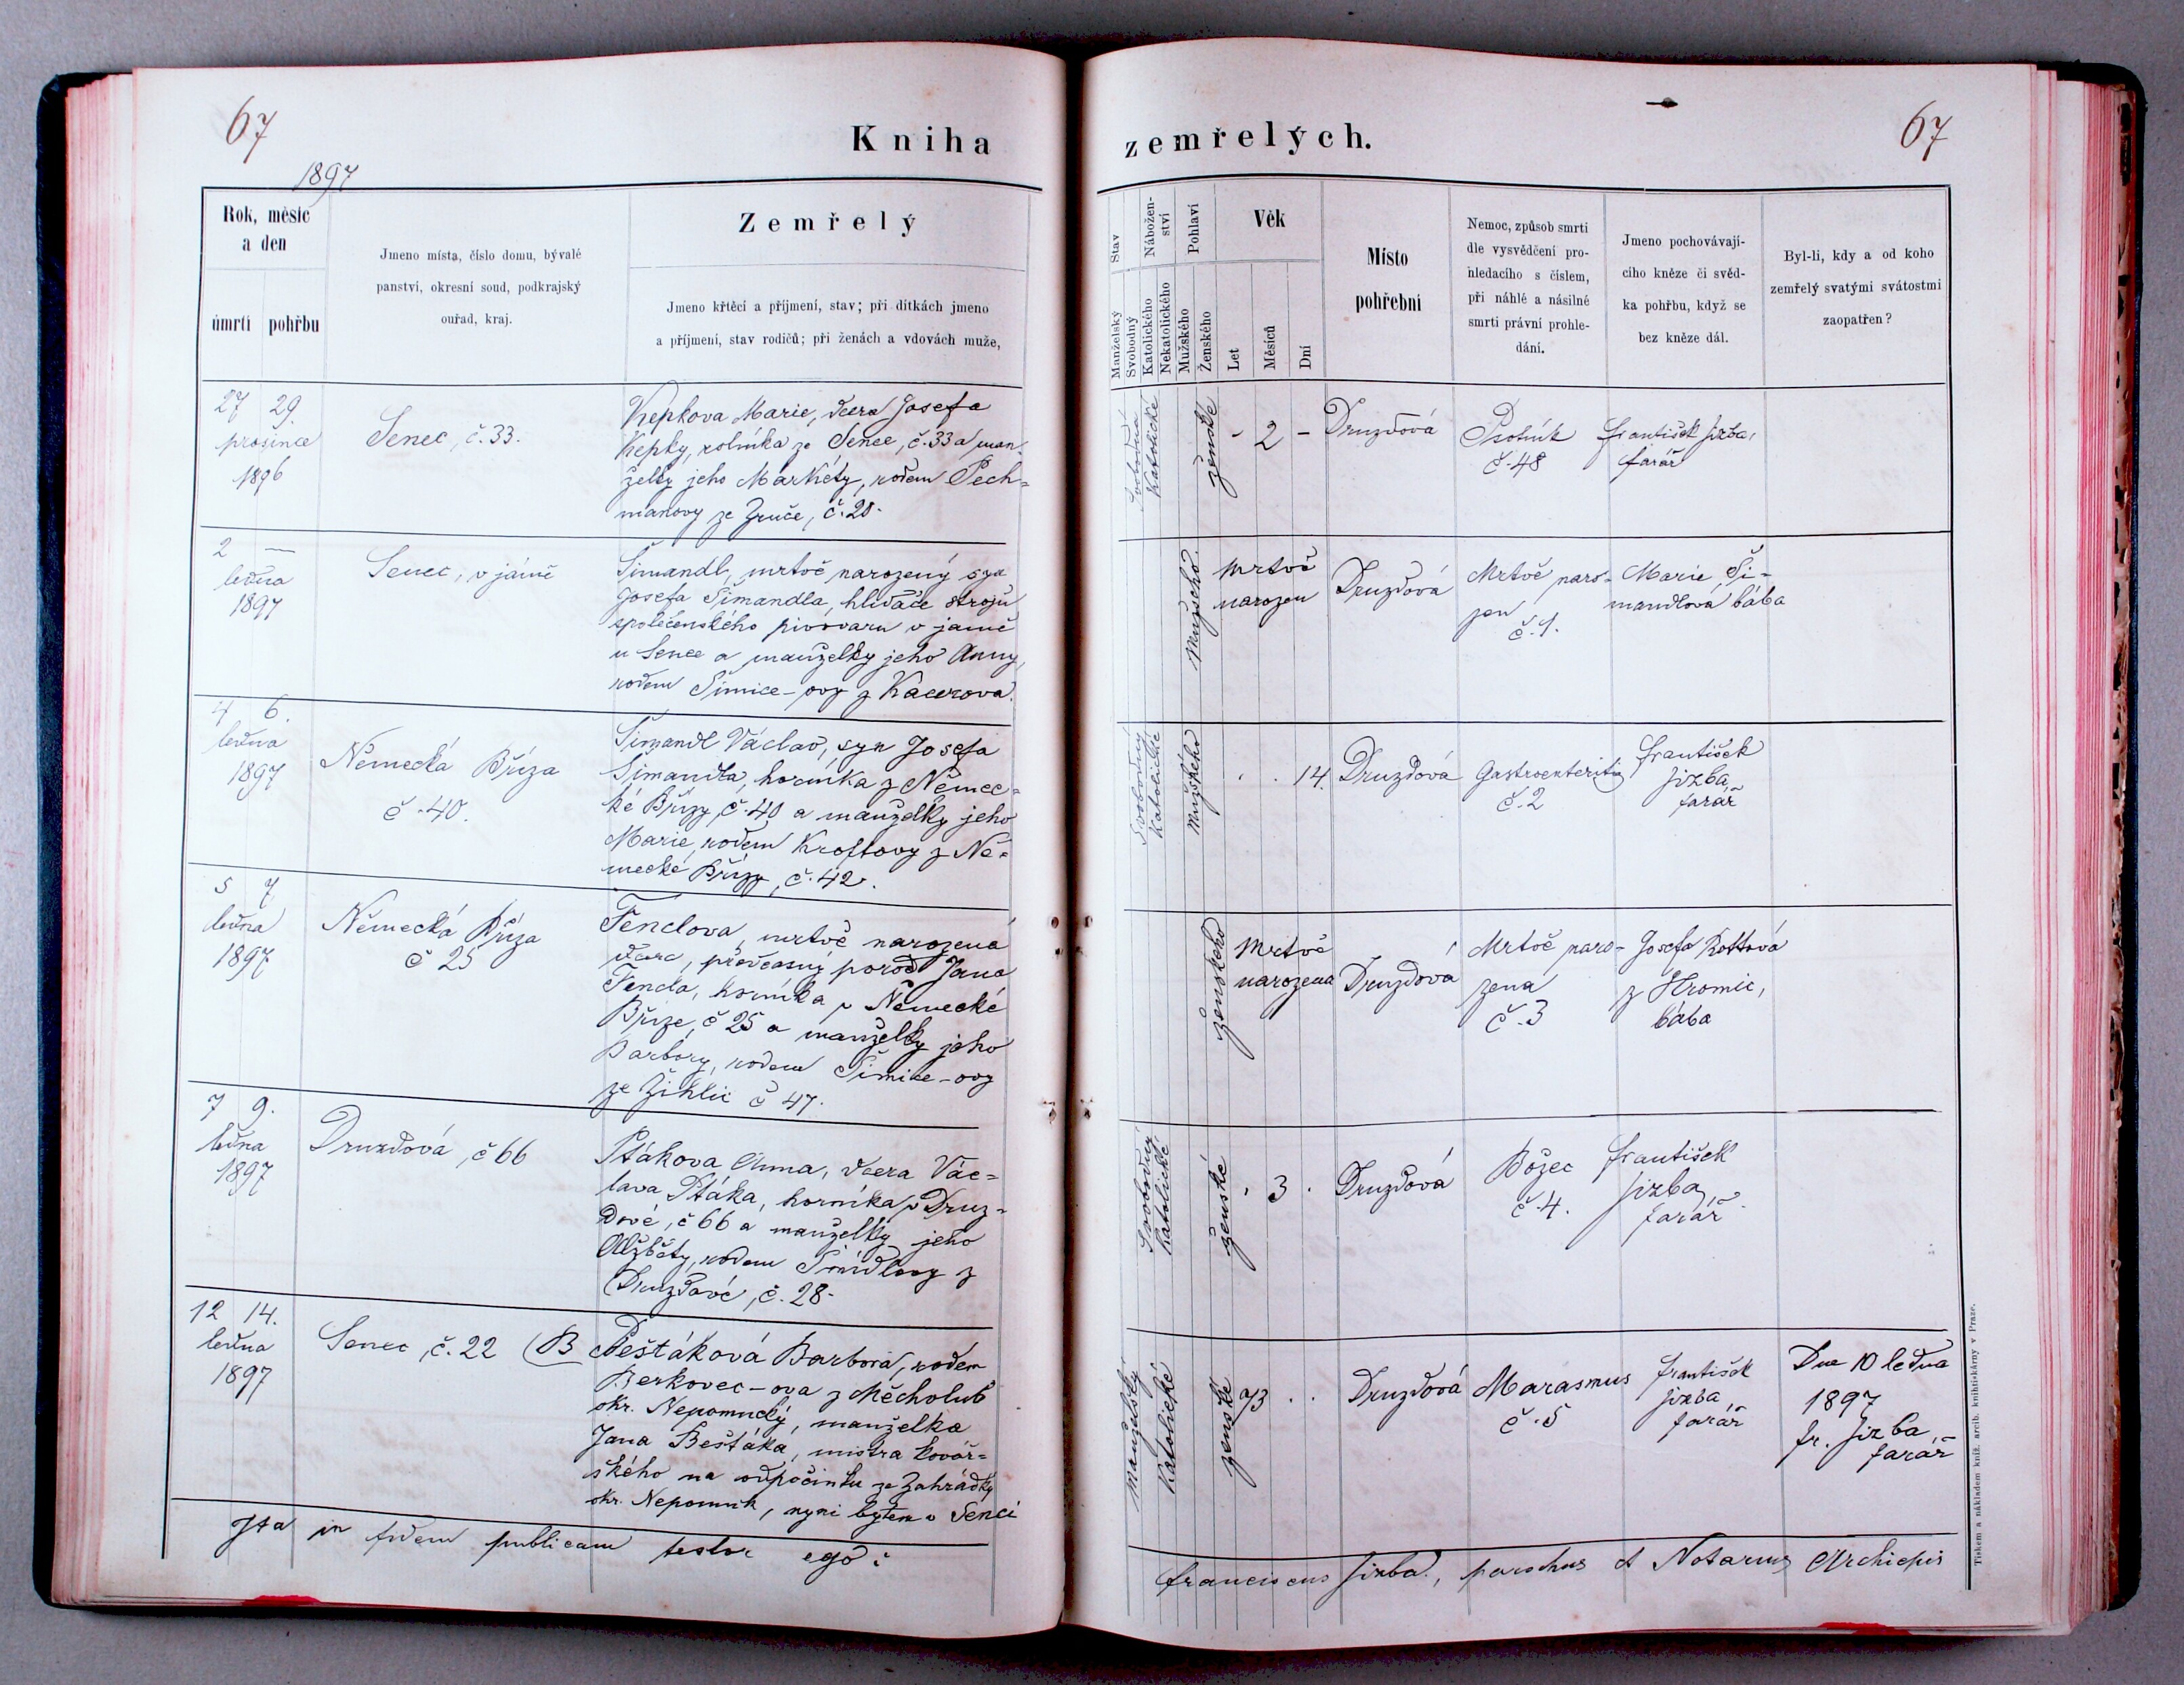 67
1897
Kniha
Rok, měsíc
a den
úmrtí pohřbu
Jmeno místa, číslo domu, bývalé
panství, okresní soud, podkrajský
ouřad, kraj.
Zemřelý
Jmeno křtěcí a příjmení, stav; při dítkách jmeno
a příjmení, stav rodičů; při ženách a vdovách muže,
27 29.
prosince
1896
Senec, č. 33.
Kepkova Marie, dcera Josefa
Kepky, rolníka ze Sence, č. 33 a man-
želky jeho Markéty, rodem Pech=
manovy ze Zruče, č. 20.
2 —
ledna
1897
Senec, v jámě
Šimandl, mrtvě narozený syn
Josefa Šimandla, hlídače strojů
společenského pivovaru v jamě
u Sence a manželky jeho Anny,
rodem Šimice-ovy z Kacerova.
4 6.
ledna
1897
Německá Bříza
č. 40.
Šimandl Václav, syn Josefa
Šimandla, horníka z Němec=
ké Břízy, č. 40 a manželky jeho
Marie, rodem Kroftovy z Ně=
mecké Břízy, č. 42.
5 7
ledna
1897
Německá Bříza
č 25
Fenclova, mrtvě narozená
dcera, předčasný porod Jana
Fencla, horníka v Německé
Bříze, č 25 a manželky jeho
Barbory, rodem Šimice-ovy
ze Žihlic č 47.
7 9.
ledna
1897
Druzdová, č 66
Ptákova Anna, dcera Vác=
lava Ptáka, horníka v Druz=
dové, č 66 a manželky jeho
Alžběty, rodem Šmídlovy z
Druzdové, č. 28.
12 14.
ledna
1897
Senec, č. 22
B Peštáková Barbora, rodem
Berkovec-ova z Měcholub
okr. Nepomucký, manželka
Jana Beštáka, mistra kovář=
ského na odpočinku ze Zahrádky
okr. Nepomuk, nyní bytem v Senci
Ita in fidem publicam testor ego:
67
zemřelých.
Stav
Manželský
Svobodný
Nábožen-
ství
Katolického
Nekatolického
Pohlaví
Mužského
Ženského
Věk
Let
Měsíců
Dní
Místo
pohřební
Nemoc, způsob smrti
dle vysvědčení pro-
hledacího s číslem,
při náhlé a násilné
smrti právní prohle-
dání.
Jmeno pochovávají-
cího kněze či svěd-
ka pohřbu, když se
bez kněze dál.
Byl-li, kdy a od koho
zemřelý svatými svátostmi
zaopatřen?
Svobodná
Katolické
ženské
- 2 -
Druzdová
Psotník
č. 48
František Jizba,
farář
Mužského
Mrtvě
narozen
Druzdová
Mrtvě naro-
zen
č. 1.
Marie Ši-
mandlová bába
Svobodný
Katolické
Mužského
. . 14.
Druzdová
Gastroenteritis
č. 2
František
Jizba,
farář
ženského
Mrtvě
narozena
Druzdová
Mrtvě naro-
zena
č. 3
Josefa Kottová
z Hromic,
bába
Svobodný
Katolické
ženské
. 3 .
Druzdová
Božec
č. 4.
František
Jizba,
farář
Manželský
Katolické
ženské
73 . .
Druzdová
Marasmus
č. 5
František
Jizba
farář
Dne 10 ledna
1897
fr. Jizba,
farář
Franciscus Jizba, parochus et Notarius Archiepis
Tiskem a nákladem kníž. arcib. knihtiskárny v Praze.